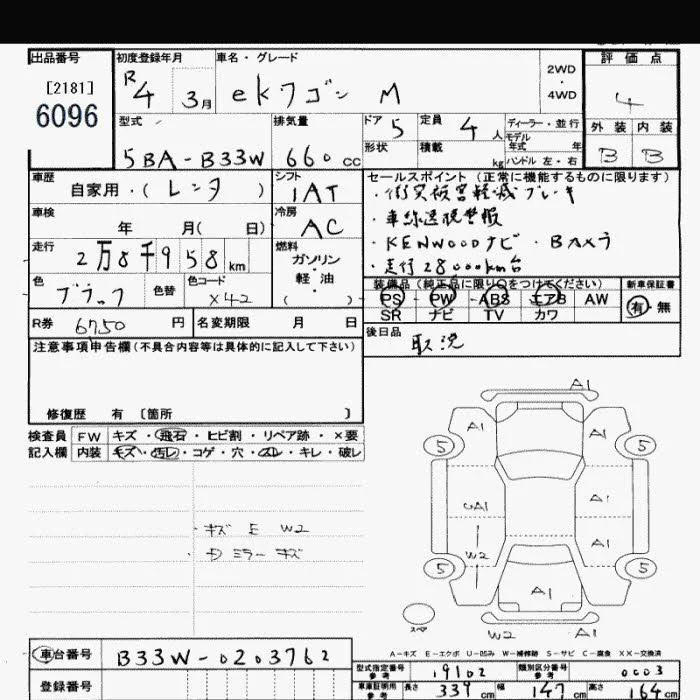 出品番号 初度登録年月 車名・グレード 2WD・4WD 評価点
[2181]
6096
R4 3月 ekワゴン M 4
型式 排気量 ドア 5 定員 4人 ディーラー・並行 外装 内装
5BA-B33W 660cc 形状 積載 kg モデル年式 年 ハンドル 左・右 B B
車歴 シフト セールスポイント(正常に機能するものに限ります)
自家用・(レンタ) IAT ・衝突被害軽減ブレーキ
車検 冷房 ・車線逸脱警報
年 月( 日) AC ・KENWOODナビ・Bカメラ
走行 燃料 ・走行28000km台
2万8千958km ガソリン・軽油・( )
色 色替 色コード 装備品(純正品に限り○をつけてください) 新車保証書
ブラック X42 PS PW ABS エアB AW 有・無
SR ナビ TV カワ
R券 6750円 名変期限 月 日 後日品
取説
注意事項申告欄(不具合内容等は具体的に記入して下さい)
修復歴 有 〔箇所 〕
検査員 FW キズ・飛石・ヒビ割・リペア跡・×要
記入欄 内装 キズ・汚レ・コゲ・穴・スレ・キレ・破レ
・キズ E W2
・Dミラーキズ
A1
A1 A1
5 5
UA1 A1
W2 A1
5 5
A1
スペア
W2 A1
A-キズ E-エクボ U-凹み W-補修跡 S-サビ C-腐食 XX-交換済
車台番号 B33W-0203762
型式指定番号 参考 19102 類別区分番号 参考 0003
登録番号 車庫証明用 参考 長さ 339cm 幅 147cm 高さ 164cm